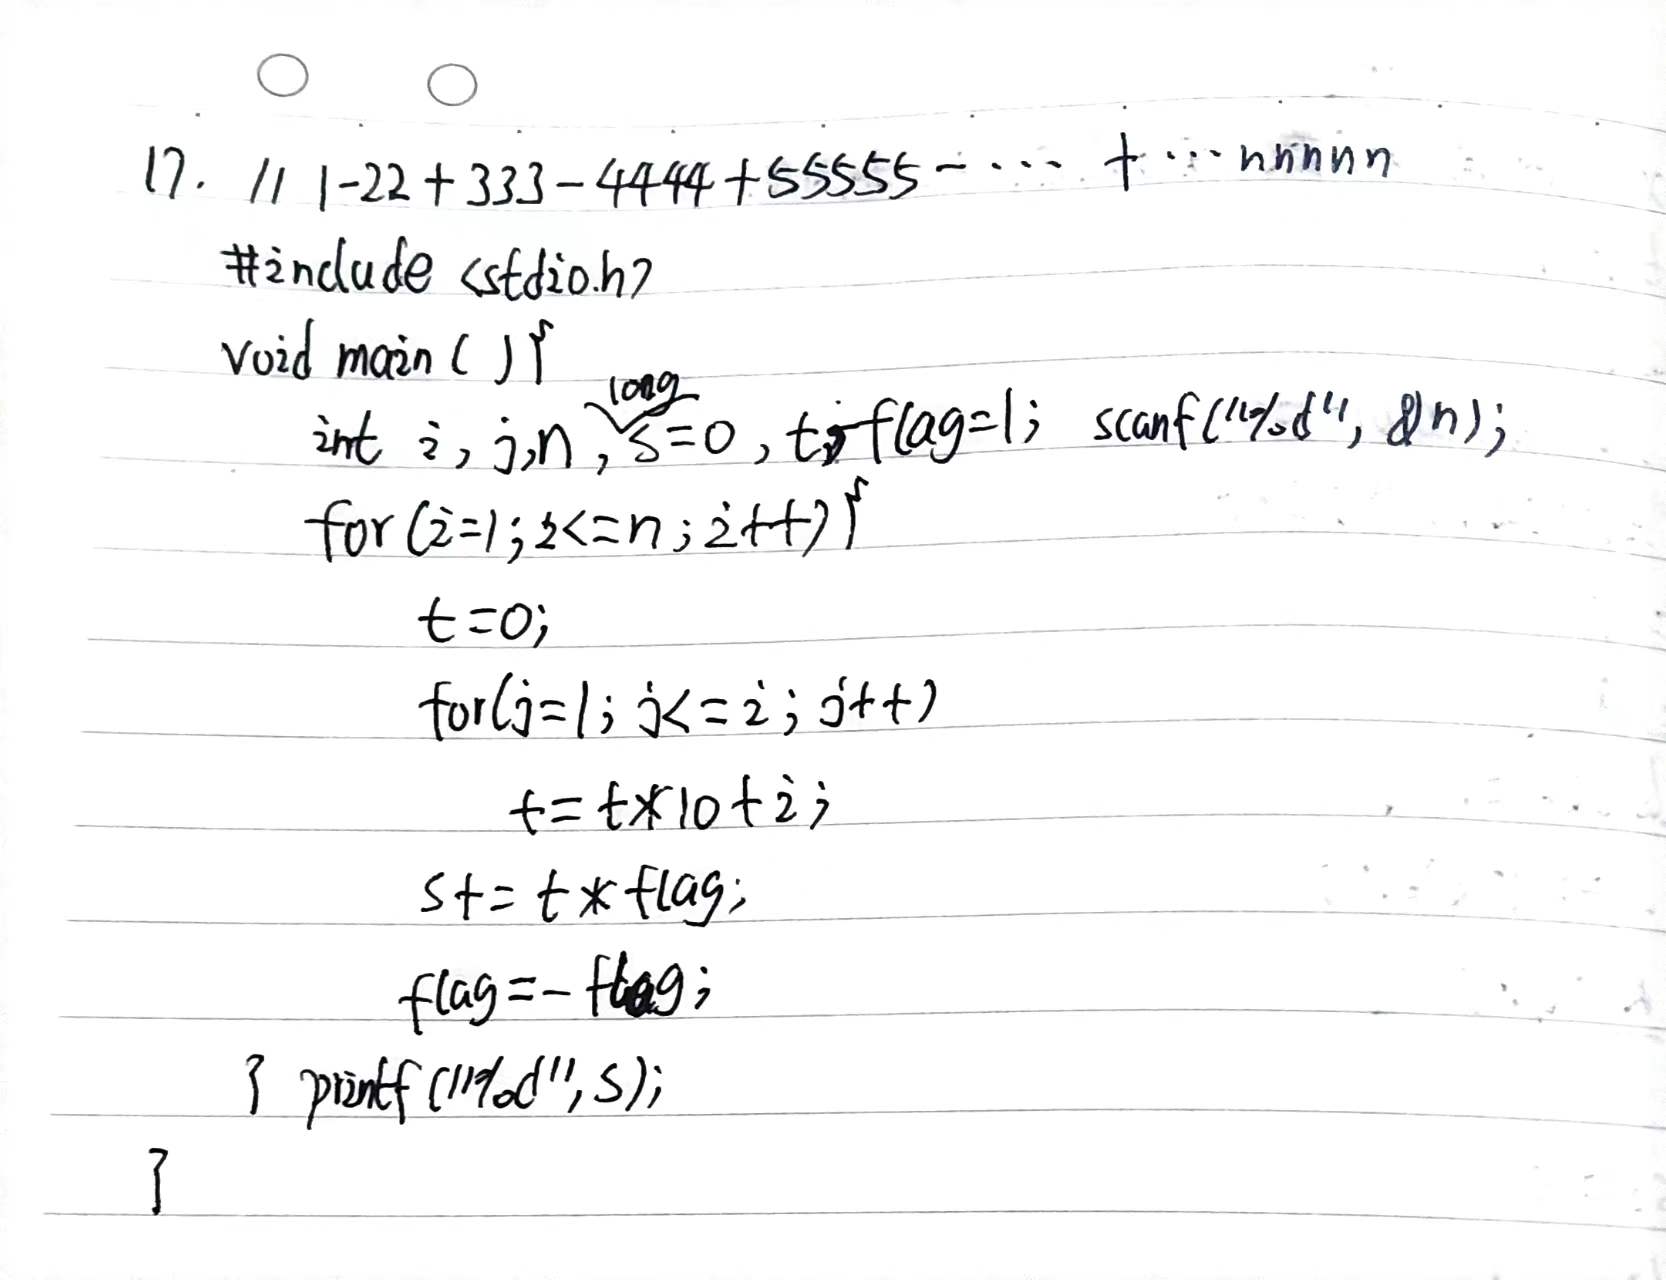 17. // 1-22+333-4444+55555-···· +···nnnnn
#include <stdio.h>
void main ( ) {
long
int i, j,n, s=0, t, flag=1; scanf("%d", &n);
for (i=1; i<=n; i++) {
t=0;
for(j=1; j<=i; j++)
t= t*10+i;
s+= t*flag;
flag=-flag;
} printf("%d", s);
}